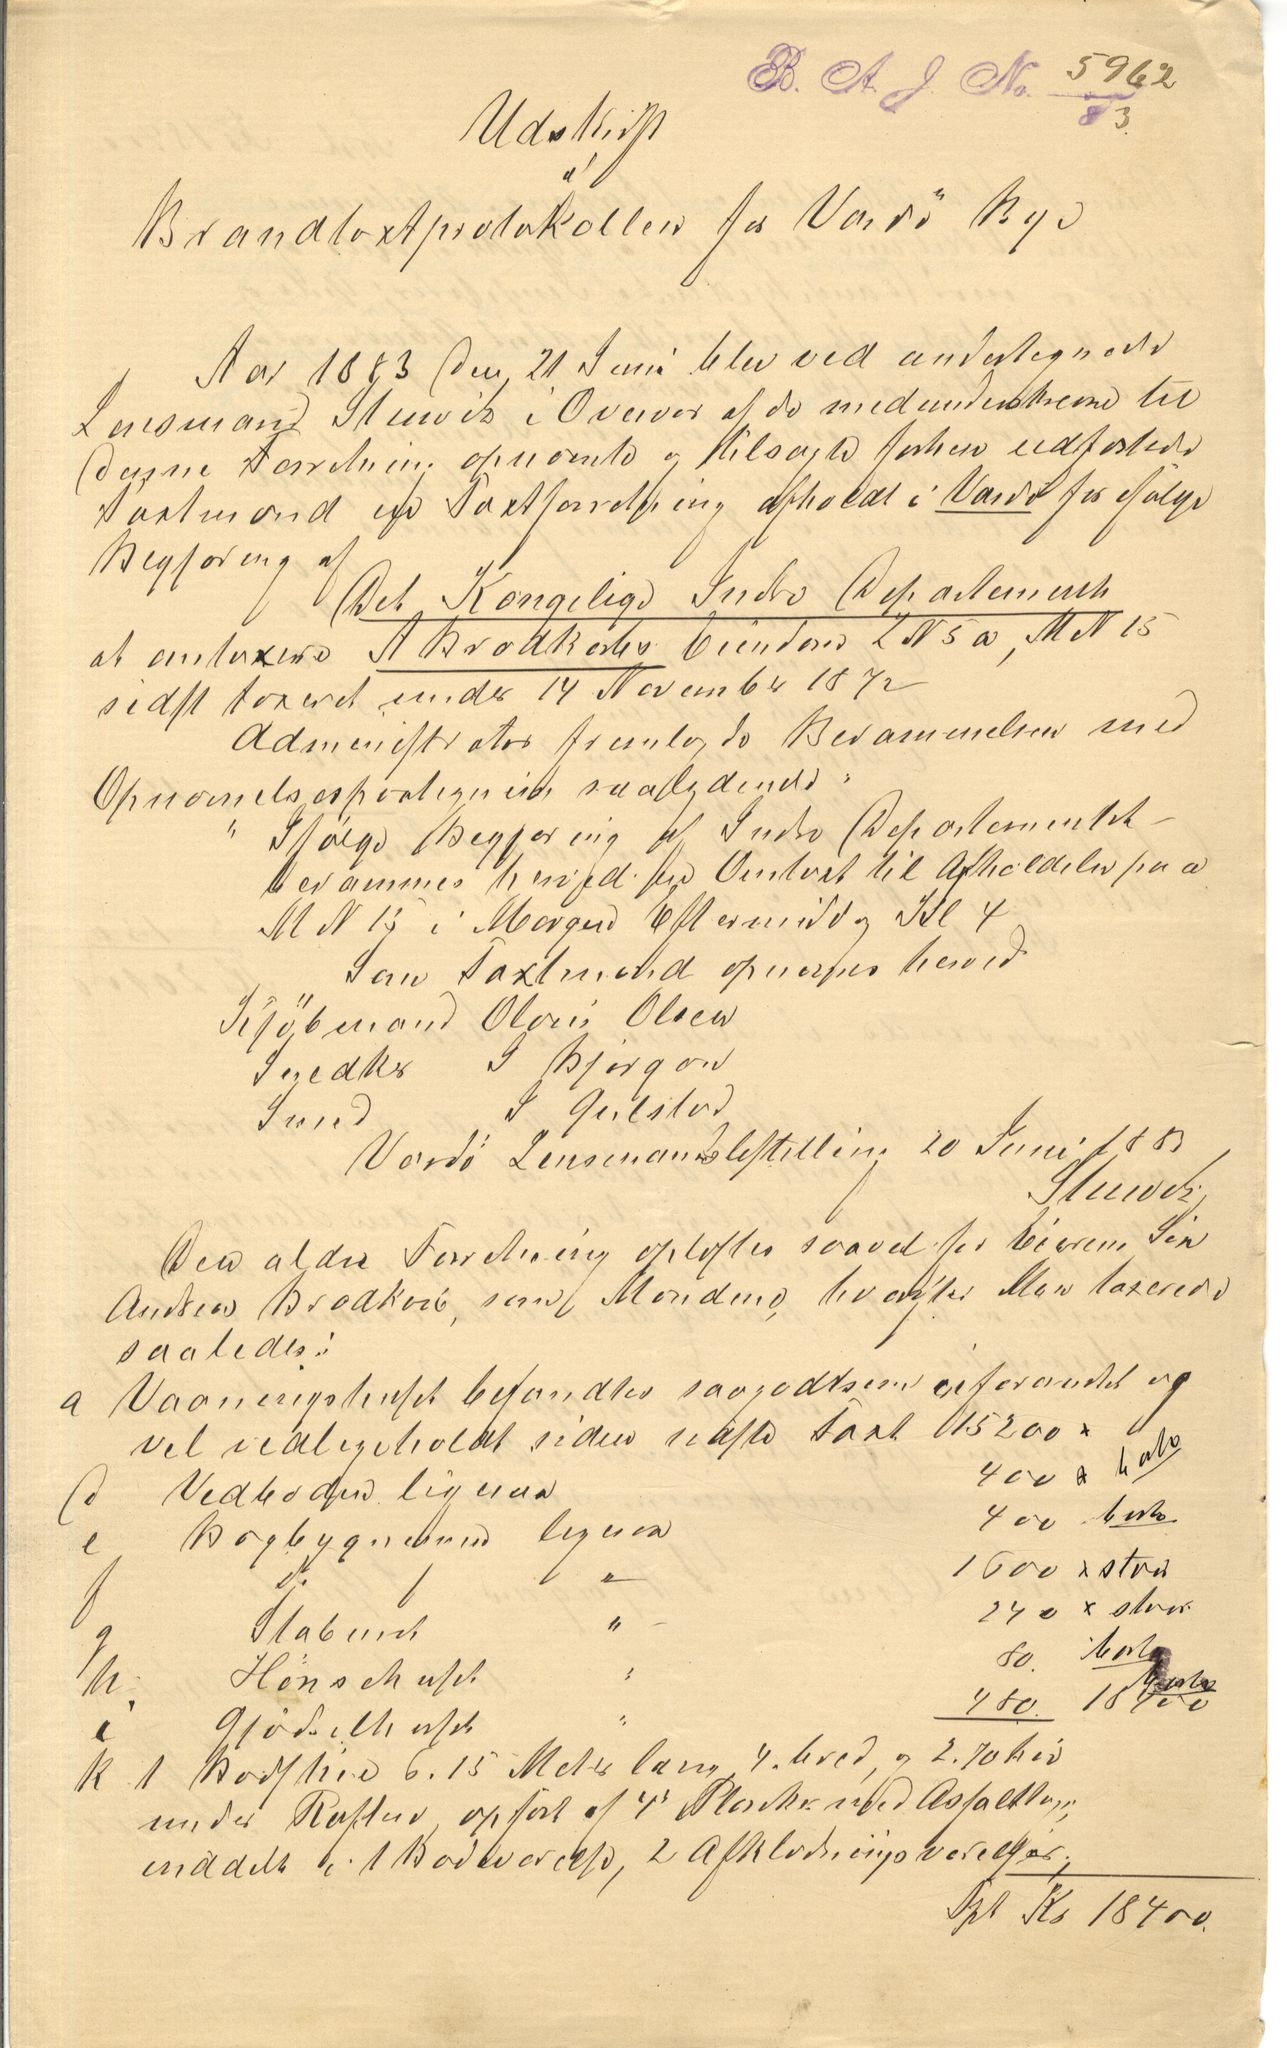 B. A. J. No. 5962
83.
Udskrift
af
Brandtaxtprotokollen for Vardö By
Aar 1883 den 21 Juni blev ved undertegnede
Lensmand Stuwitz i Overvær af de medunderskrevne til
denne Forretning opnævnte og tilsagte forhen edfæstede
Taxtmænd en Taxtforretning afholdt i Vardö for ifölge
Begjæring af
Det Kongelige Indre Departement
at omtaxere A Brodtkorbs Eiendom L N 5 a, M N 15
sidst taxeret under 14 November 1872
Administrator fremlagde Berammelsen med
Opnævnelsespaategning saalydende:
" Ifölge Begjæring af Indre Departementet
berammes herved en Omtaxt til Afholdelse paa
M N 15 i Morgen Eftermiddag Kl 4
Som Taxtmænd opnævnes herved
Kjöbmand Olaus Olsen
Snedker
Smed
Vardö Lensmandsbestilling 20 Juni 1883
Stuwitz
Den aldre Forretning oplæstes saavel for Eieren
Andreas Brodtkorb, som Mændene, hvorefter Man taxerede
saaledes:
a Vaaningshuset befandtes saagodtsom uforandret og
vel vedligeholdt siden sidste Taxt 15200 x
d Vedboden ligesaa 400 x borte
e Bagbygningen ligesaa 400 borte
f do " 1600 x staar
g Stabur " 240 x staar
h. Hönsehuset " 80. borte
i Gjödselhuset " 480. borte 18400
k 1 Badstue 6.15 Meter lang, 4. bred, og 2.70 höi
under Raften, opfört af 4" Planker med Asfalttag,
inddelt i 1 Badeværelse, 2 Afklædningsværelser,
Tpt Kr 18400.